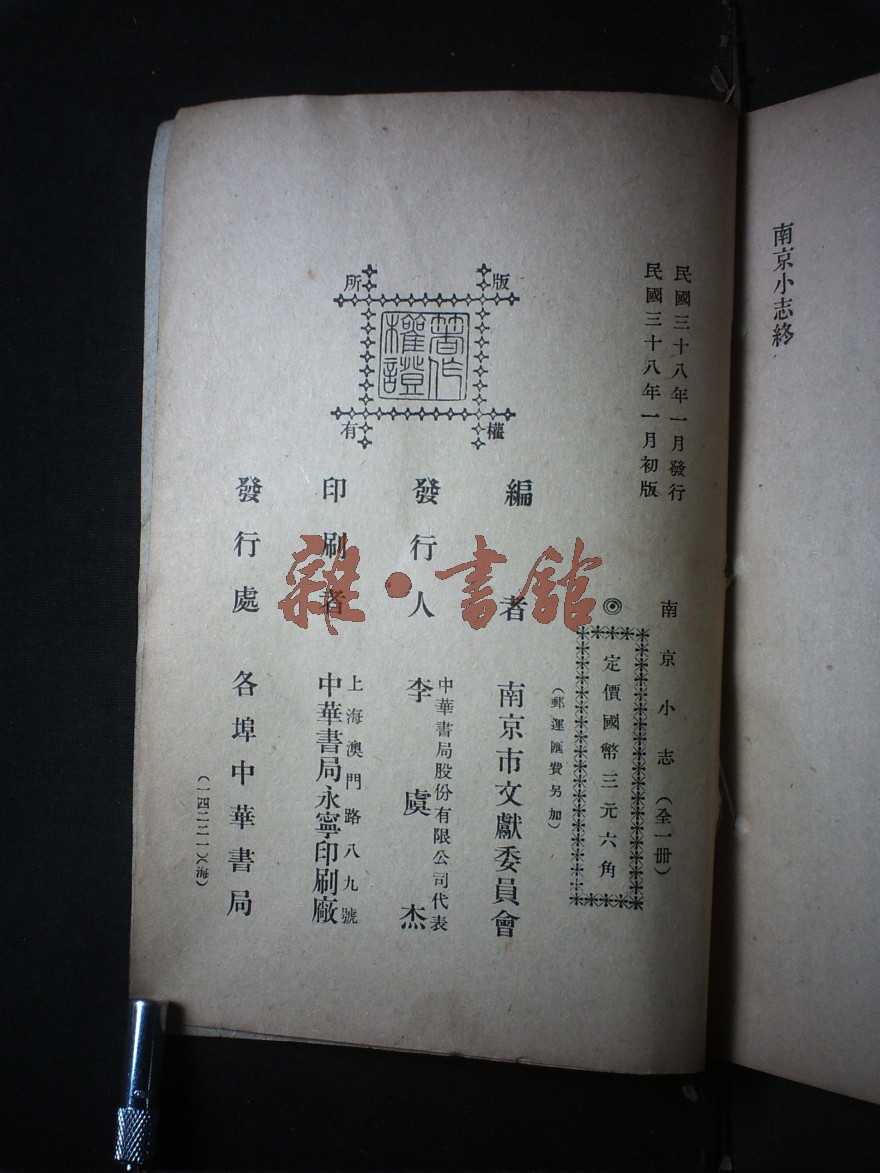 南京小志終
民國三十八年一月發行
民國三十八年一月初版
南京小志（全一冊）
◎
定價國幣三元六角
（郵運匯費另加）
版權所有
著作權證
編者 南京市文獻委員會
發行人 中華書局股份有限公司代表
李虞杰
印刷者 上海澳門路八九號
中華書局永寧印刷廠
發行處 各埠中華書局
（一四二二一）（海）
雜·書館